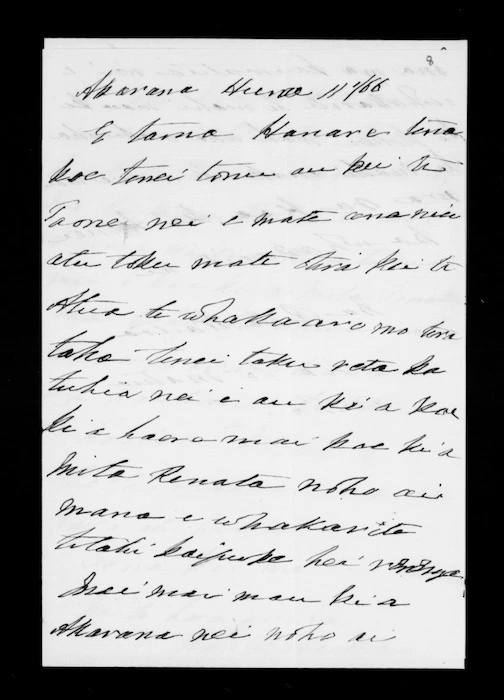 8
Akarana Hune 11th/66
E tama Hanare tena
koe tenei tonu au kei te
Taone nei e mate ana nui
atu toku mate tera kei te
Atua te whakaaro mo tera
taha tenei taku reta ka
tuhia nei e au ki a koe
ki a haere mai koe ki a
Mita Renata noho ai
mana e whakarite
tetahi kaipuke hei
mai mau ki a
Akarana nei noho ai